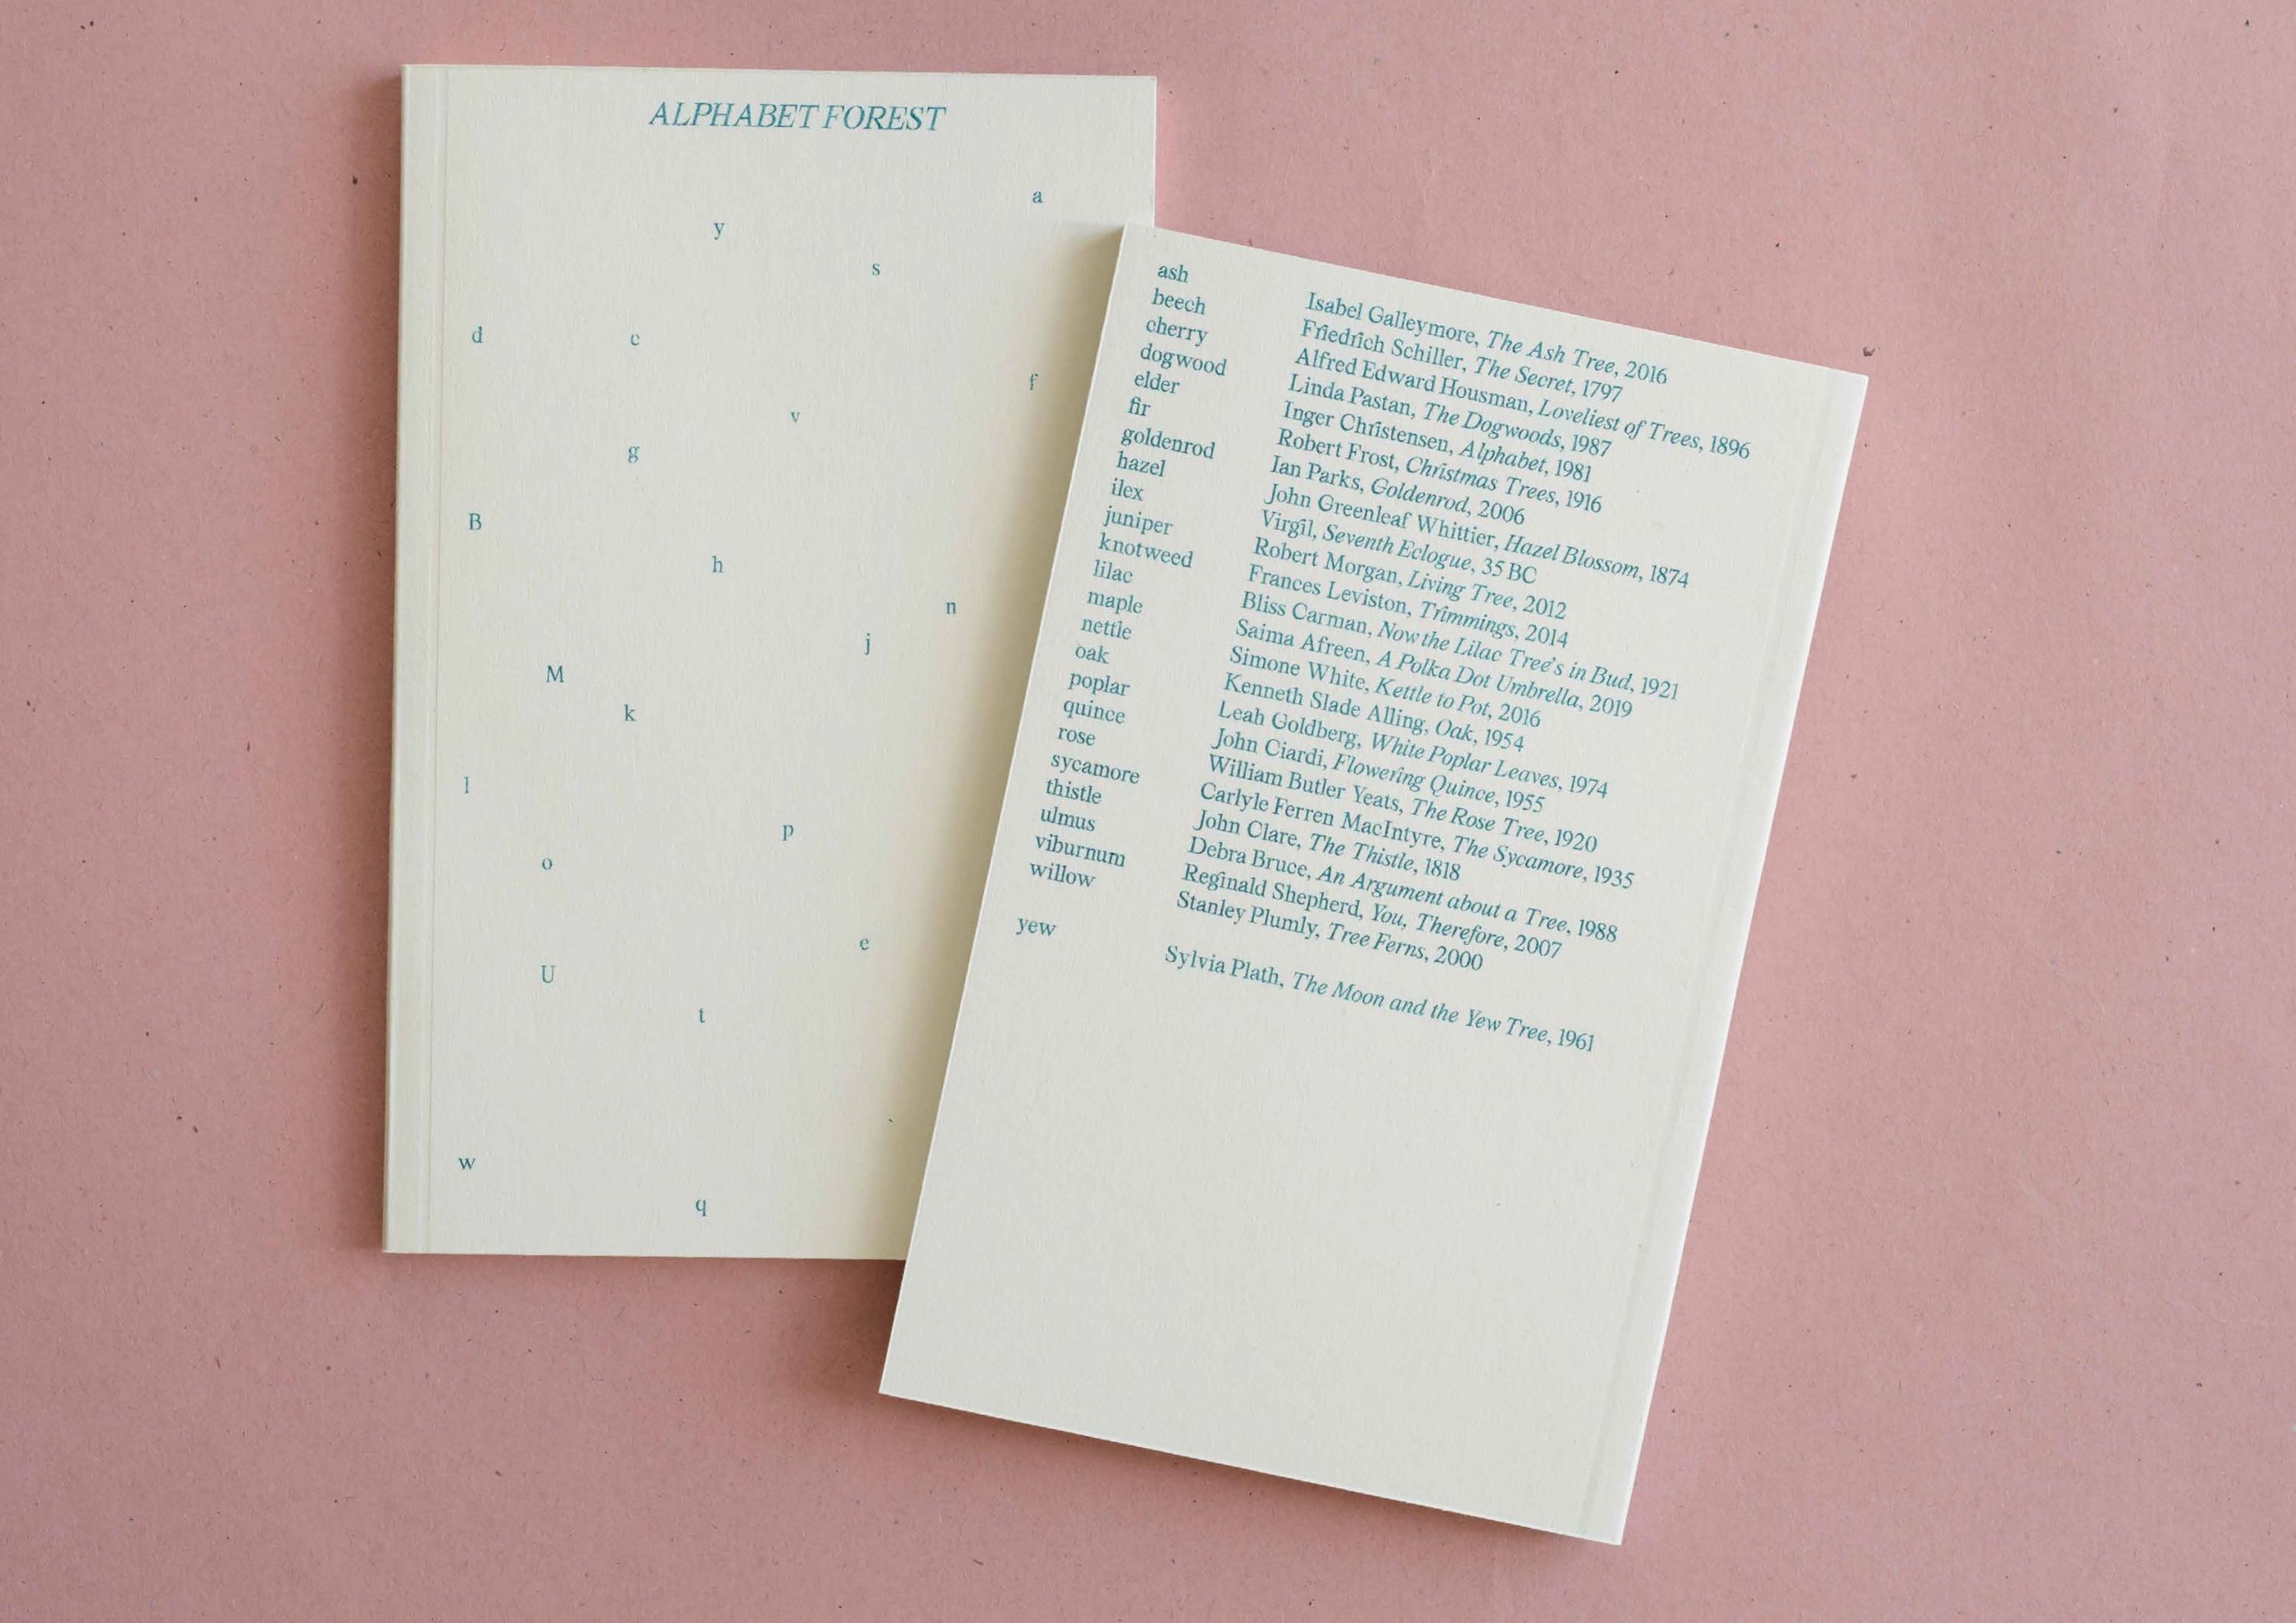 ALPHABET FOREST
a
y
s
d c
f
v
g
B
h
n
j
M
k
l
p
o
e
U
t
w
q
ash Isabel Galleymore, The Ash Tree, 2016
beech Friedrich Schiller, The Secret, 1797
cherry Alfred Edward Housman, Loveliest of Trees, 1896
dogwood Linda Pastan, The Dogwoods, 1987
elder Inger Christensen, Alphabet, 1981
fir Robert Frost, Christmas Trees, 1916
goldenrod Ian Parks, Goldenrod, 2006
hazel John Greenleaf Whittier, Hazel Blossom, 1874
ilex Virgil, Seventh Eclogue, 35 BC
juniper Robert Morgan, Living Tree, 2012
knotweed Frances Leviston, Trimmings, 2014
lilac Bliss Carman, Now the Lilac Tree's in Bud, 1921
maple Saima Afreen, A Polka Dot Umbrella, 2019
nettle Simone White, Kettle to Pot, 2016
oak Kenneth Slade Alling, Oak, 1954
poplar Leah Goldberg, White Poplar Leaves, 1974
quince John Ciardi, Flowering Quince, 1955
rose William Butler Yeats, The Rose Tree, 1920
sycamore Carlyle Ferren MacIntyre, The Sycamore, 1935
thistle John Clare, The Thistle, 1818
ulmus Debra Bruce, An Argument about a Tree, 1988
viburnum Reginald Shepherd, You, Therefore, 2007
willow Stanley Plumly, Tree Ferns, 2000
yew Sylvia Plath, The Moon and the Yew Tree, 1961